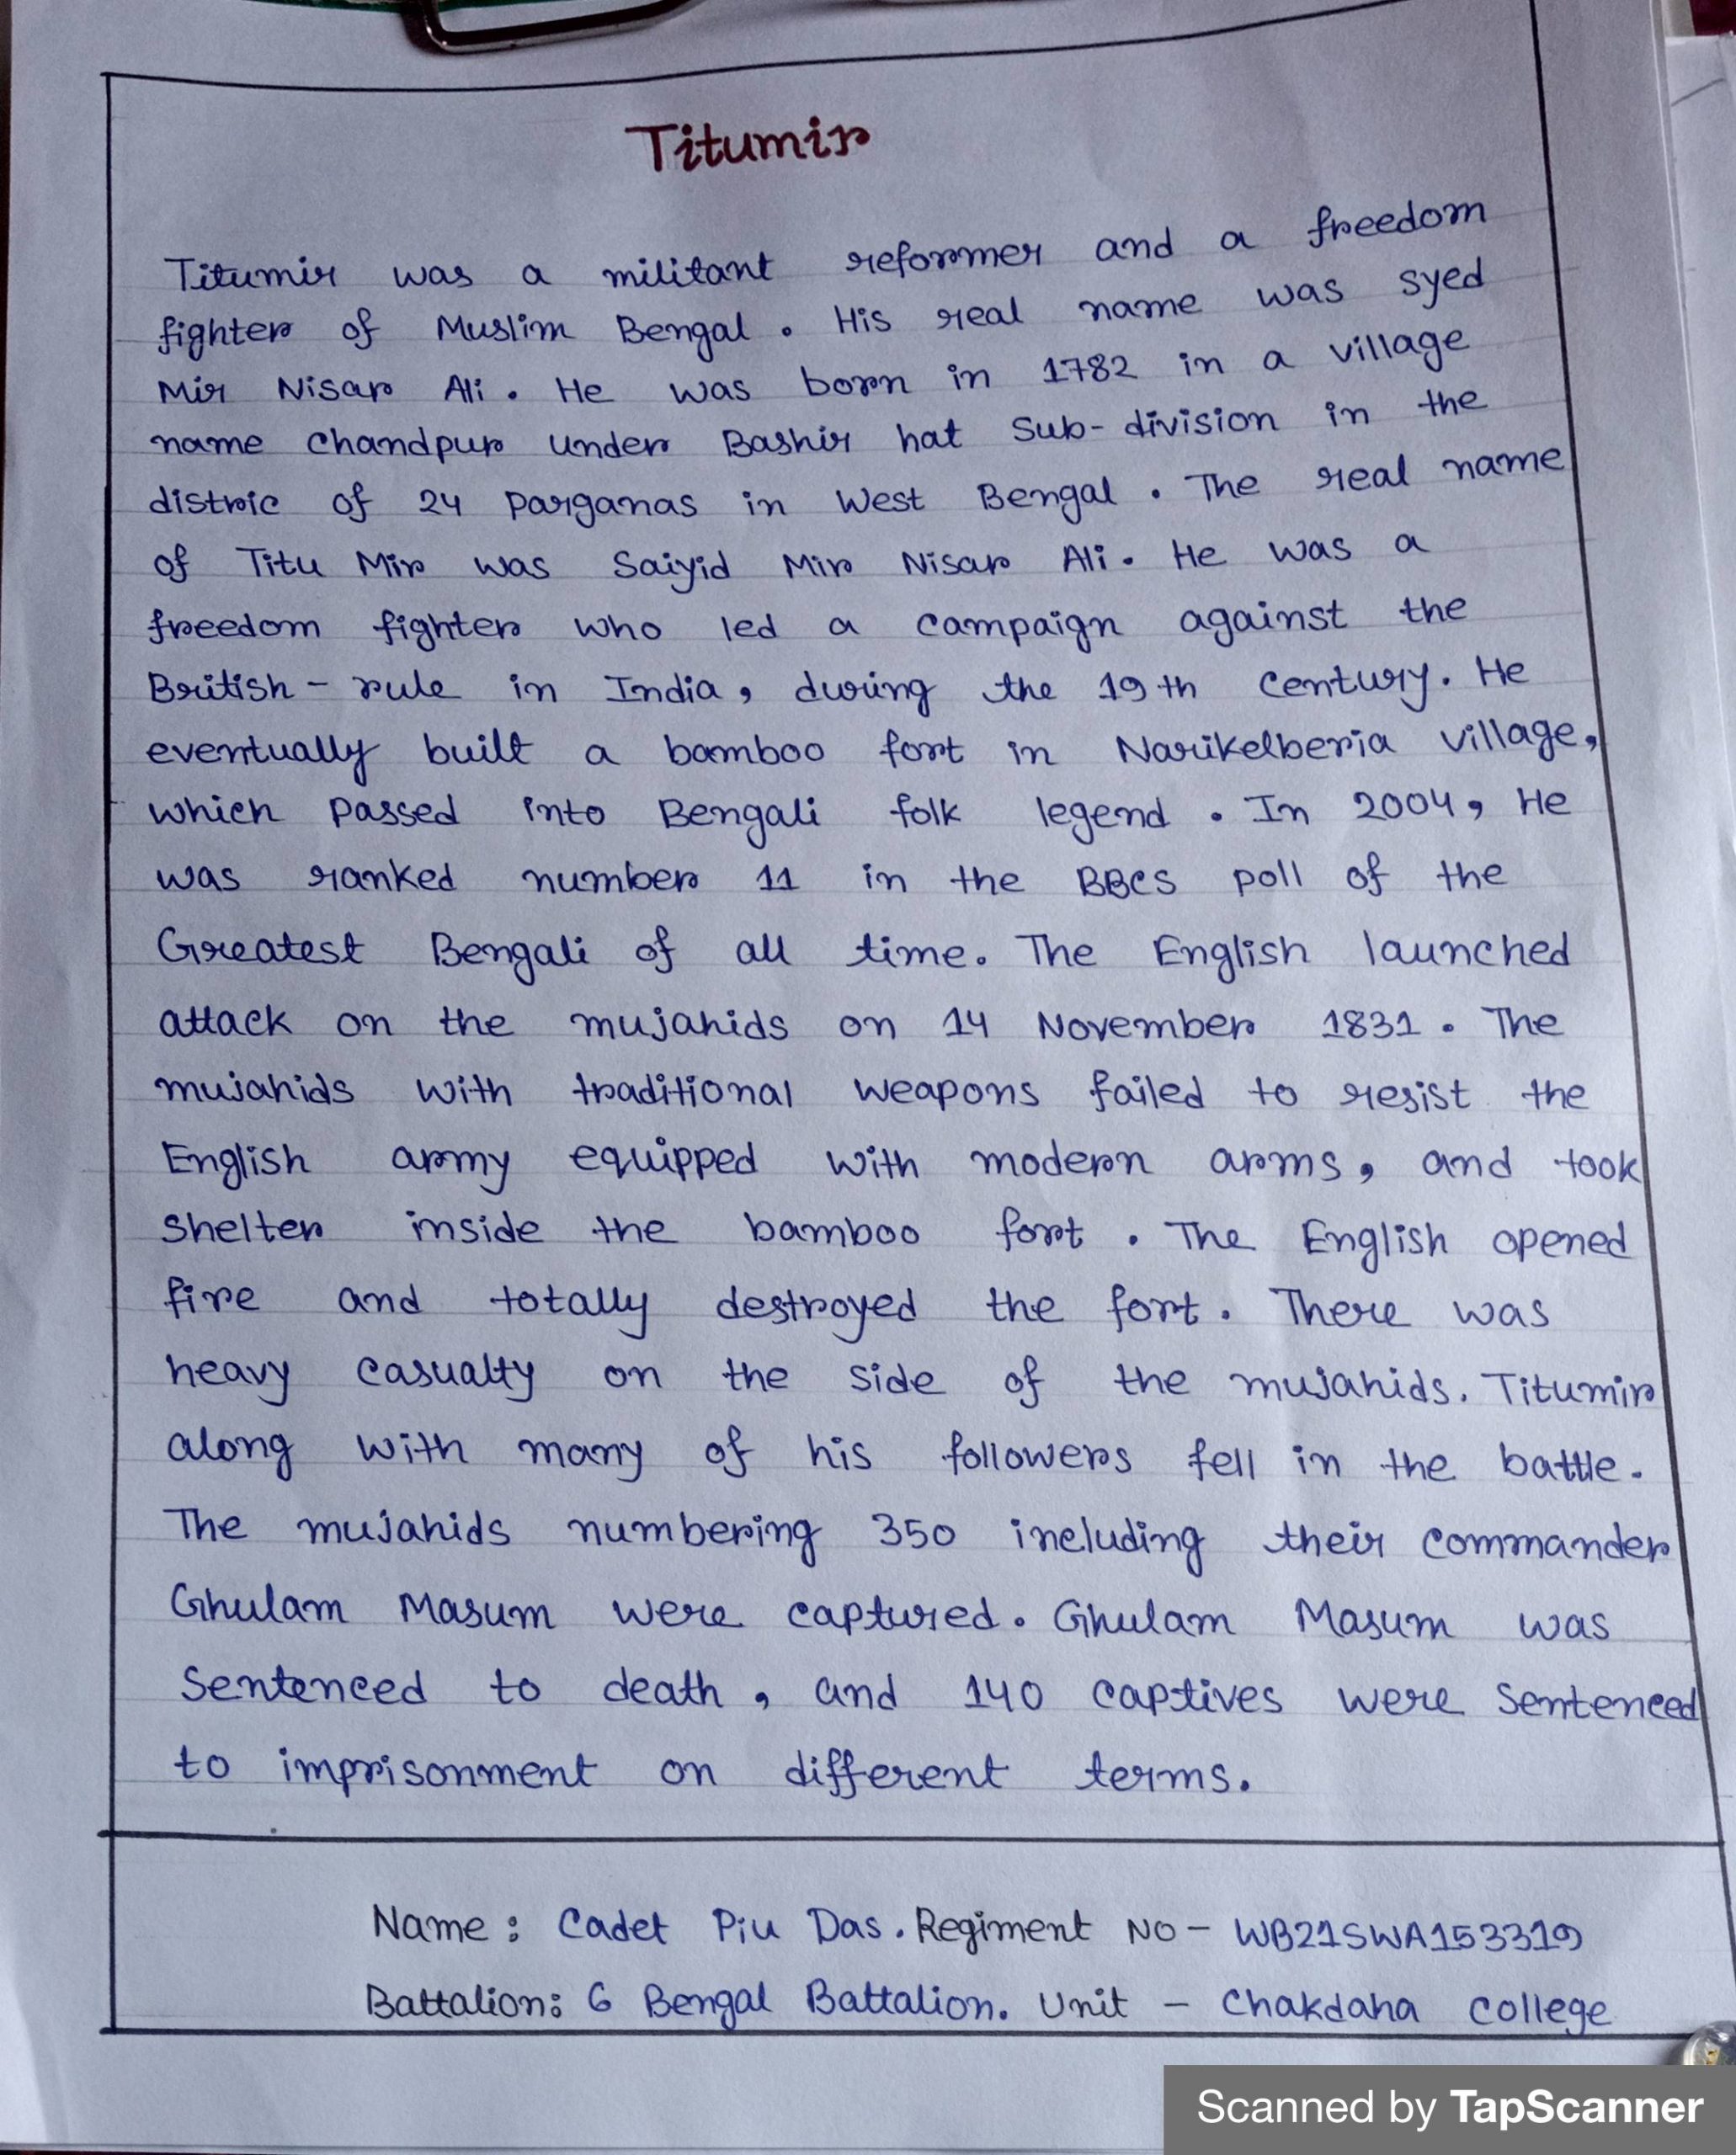 Titumir
Titumir was a militant reformer and a freedom
fighter of Muslim Bengal. His real name was syed
Mir Nisar Ali. He was born in 1782 in a village
name Chandpur under Bashir hat Sub-division in the
distric of 24 Parganas in West Bengal. The real name
of Titu Mir was Saiyid Mir Nisar Ali. He was a
freedom fighter who led a campaign against the
British - rule in India, during the 19th Century. He
eventually built a bamboo fort in Narikelberia village,
which passed into Bengali folk legend. In 2004, He
was ranked number 11 in the BBCS poll of the
Greatest Bengali of all time. The English launched
attack on the mujahids on 14 November 1831. The
mujahids with traditional weapons failed to resist the
English army equipped with modern arms, and took
Shelter inside the bamboo fort. The English opened
fire and totally destroyed the fort. There was
heavy casualty on the side of the mujahids. Titumir
along with many of his followers fell in the battle.
The mujahids numbering 350 including their commander
Ghulam Masum were captured. Ghulam Masum was
Sentenced to death, and 140 captives were sentenced
to imprisonment on different terms.
Name: Cadet Piu Das. Regiment NO - WB21SWA153319
Battalion: 6 Bengal Battalion. Unit - Chakdaha College
Scanned by TapScanner